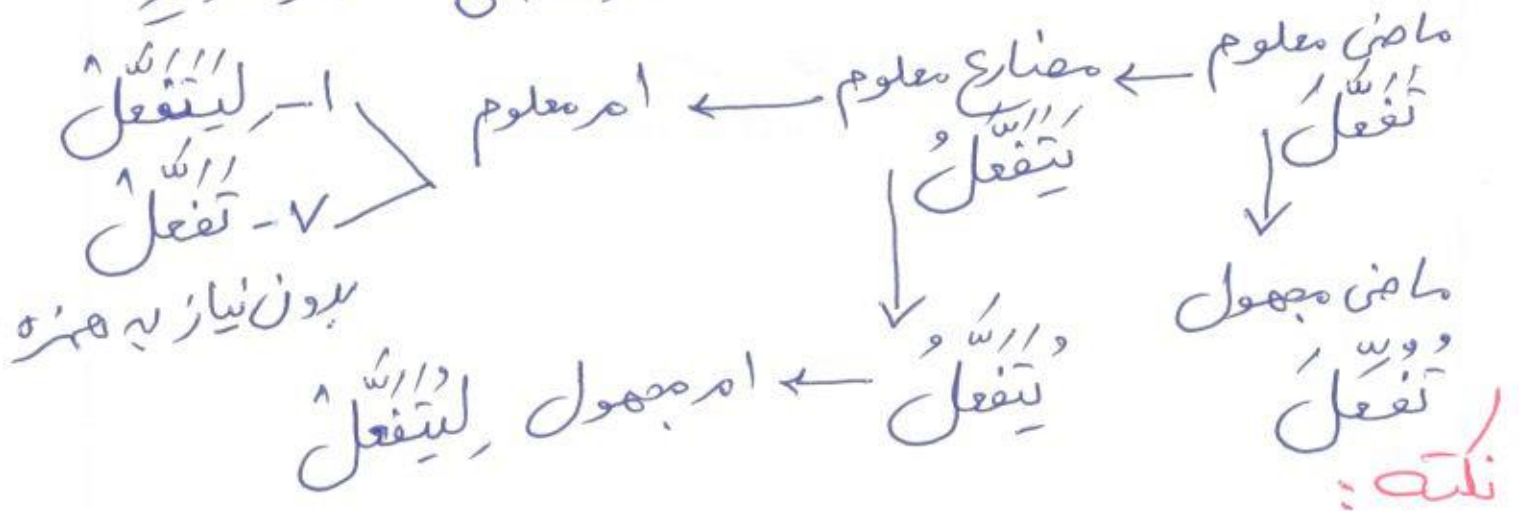 ماضی معلوم ← مضارع معلوم ← امر معلوم ۱- لِيَتَفَعَّلْ
تَفَعَّلَ يَتَفَعَّلُ ۷- تَفَعَّلْ
بدون نیاز به همزه
ماضی مجهول
تُفُعِّلَ يُتَفَعَّلُ ← امر مجهول لِيُتَفَعَّلْ
نکته :